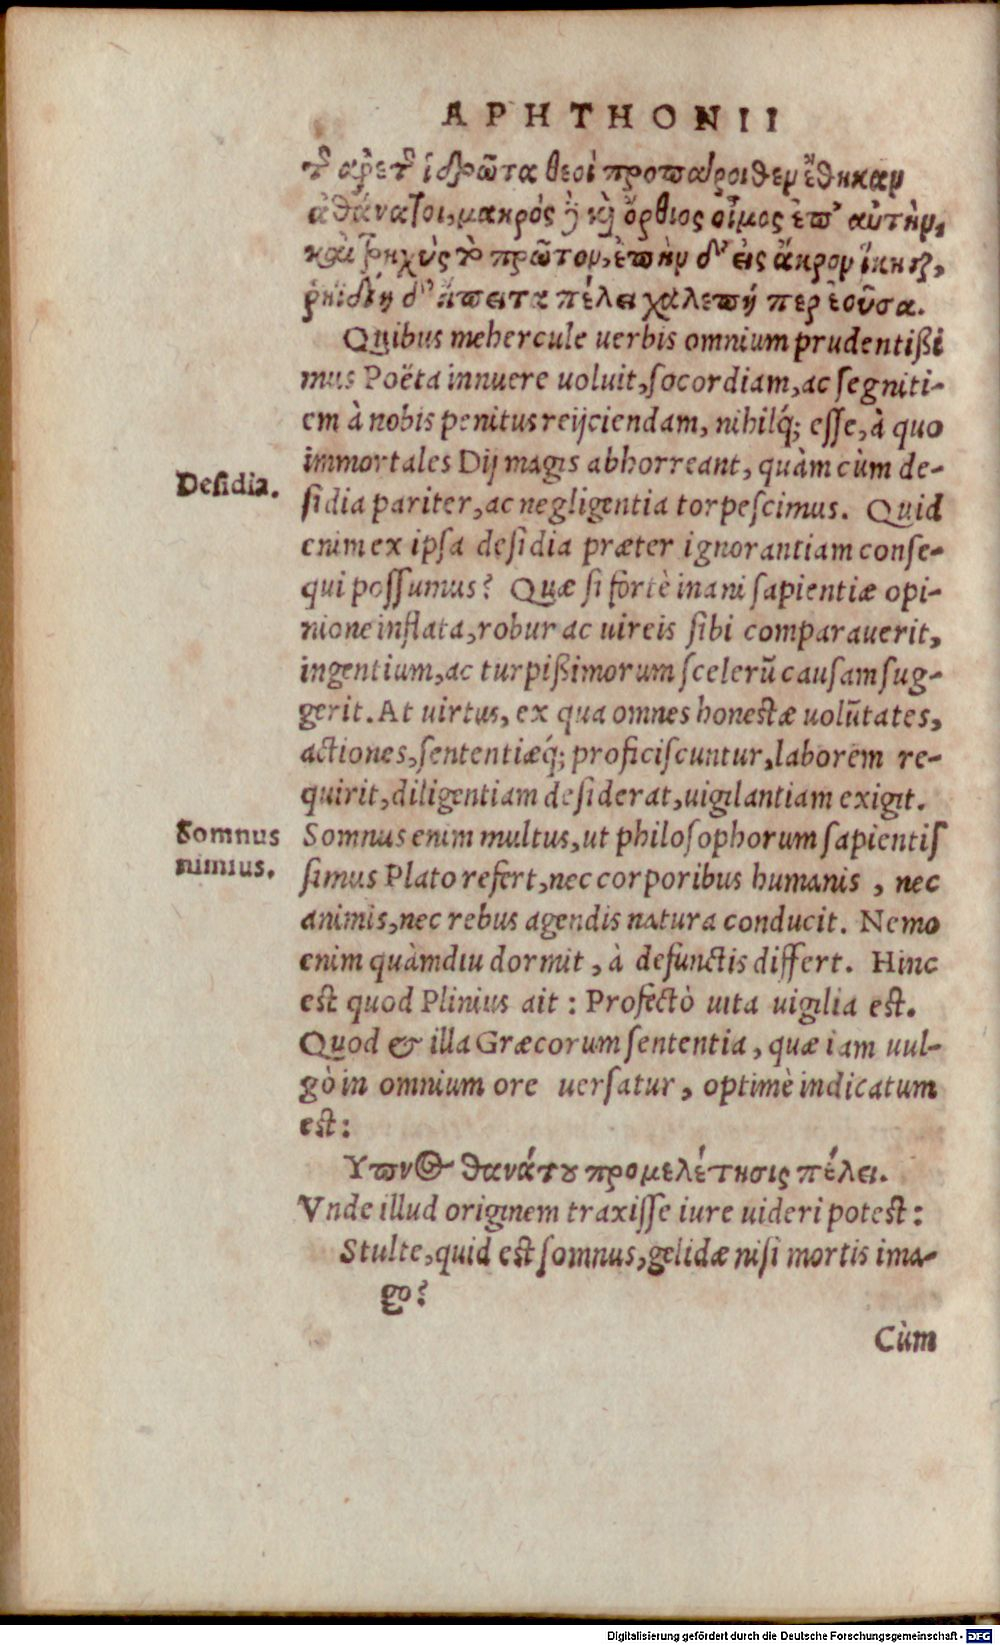 APHTHONII
τῆς ἀρετῆς ἱδρῶτα θεοὶ προπάροιθεν ἔθηκαν
ἀθάνατοι, μακρὸς δὲ καὶ ὄρθιος οἶμος ἐπ' αὐτὴν,
καὶ τρηχὺς τὸ πρῶτον, ἐπὴν δ' εἰς ἄκρον ἵκηται,
ῥηϊδίη δ' ἤπειτα πέλει χαλεπή περ ἐοῦσα.
Quibus mehercule uerbis omnium prudentißi
mus Poëta innuere uoluit, socordiam, ac segniti-
em à nobis penitus reijciendam, nihilq́; esse, à quo
immortales Dij magis abhorreant, quàm cùm de-
Desidia.
sidia pariter, ac negligentia torpescimus. Quid
enim ex ipsa desidia præter ignorantiam conse-
qui possumus? Quæ si fortè inani sapientiæ opi-
nione inflata, robur ac uireis sibi comparauerit,
ingentium, ac turpißimorum scelerũ causam sug-
gerit. At uirtus, ex qua omnes honestæ uolũtates,
actiones, sententiæq́; proficiscuntur, laborem re-
quirit, diligentiam desiderat, uigilantiam exigit.
Somnus
nimius.
Somnus enim multus, ut philosophorum sapientis
simus Plato refert, nec corporibus humanis, nec
animis, nec rebus agendis natura conducit. Nemo
enim quàmdiu dormit, à defunctis differt. Hinc
est quod Plinius ait: Profectò uita uigilia est.
Quod & illa Græcorum sententia, quæ iam uul-
gò in omnium ore uersatur, optimè indicatum
est:
Υπνος θανάτου προμελέτησις πέλει.
Vnde illud originem traxisse iure uideri potest:
Stulte, quid est somnus, gelidæ nisi mortis ima-
go?
Cùm
Digitalisierung gefördert durch die Deutsche Forschungsgemeinschaft - DFG